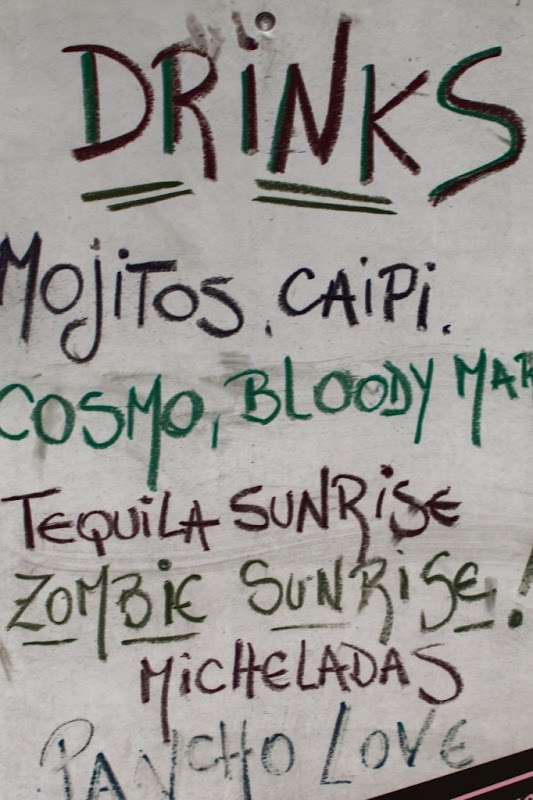 DRiNKS
MOjiTOS. CAiPi.
COSMO, BLOODY MAR
TEQUiLA SUNRiSE
ZOMBiE SUNRiSE!
MiCHELADAS
PANCHO LOVE